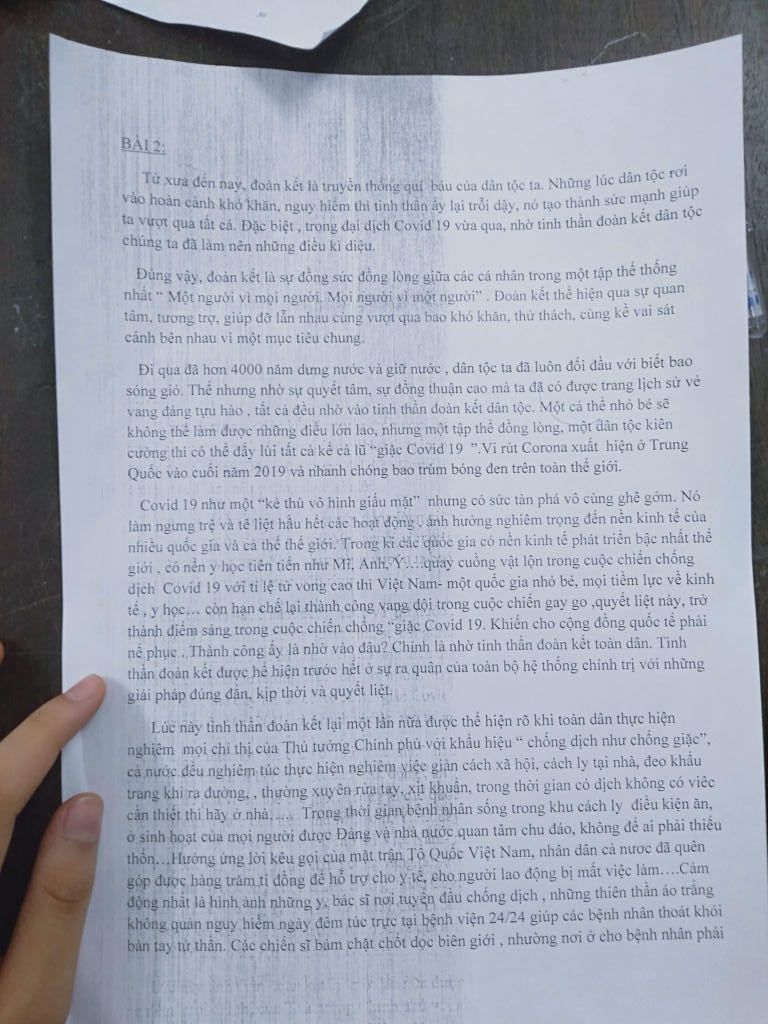 BÀI 2:
Từ xưa đến nay, đoàn kết là truyền thống quí báu của dân tộc ta. Những lúc dân tộc rơi
vào hoàn cảnh khó khăn, nguy hiểm thì tinh thần ấy lại trỗi dậy, nó tạo thành sức mạnh giúp
ta vượt qua tất cả. Đặc biệt , trong đại dịch Covid 19 vừa qua, nhờ tinh thần đoàn kết dân tộc
chúng ta đã làm nên những điều kì diệu.
Đúng vậy, đoàn kết là sự đồng sức đồng lòng giữa các cá nhân trong một tập thể thống
nhất " Một người vì mọi người. Mọi người vì một người" . Đoàn kết thể hiện qua sự quan
tâm, tương trợ, giúp đỡ lẫn nhau cùng vượt qua bao khó khăn, thử thách, cùng kề vai sát
cánh bên nhau vì một mục tiêu chung.
Đi qua đã hơn 4000 năm dưng nước và giữ nước , dân tộc ta đã luôn đối đầu với biết bao
sóng gió. Thế nhưng nhờ sự quyết tâm, sự đồng thuận cao mà ta đã có được trang lịch sử vẻ
vang đáng tựu hào , tất cả đều nhờ vào tinh thần đoàn kết dân tộc. Một cá thể nhỏ bé sẽ
không thể làm được những điều lớn lao, nhưng một tập thể đồng lòng, một dân tộc kiên
cường thì có thể đẩy lùi tất cả kể cả lũ "giặc Covid 19 ".Vi rút Corona xuất hiện ở Trung
Quốc vào cuối năm 2019 và nhanh chóng bao trùm bóng đen trên toàn thế giới.
Covid 19 như một "kẻ thù vô hình giấu mặt" nhưng có sức tàn phá vô cùng ghê gớm. Nó
làm ngưng trệ và tê liệt hầu hết các hoạt động , ảnh hưởng nghiêm trọng đến nền kinh tế của
nhiều quốc gia và cả thế thế giới. Trong kì các quốc gia có nền kinh tế phát triển bậc nhất thế
giới , có nền y học tiên tiến như Mĩ, Anh, Ý....quay cuồng vật lộn trong cuộc chiến chống
dịch Covid 19 với tỉ lệ tử vong cao thì Việt Nam- một quốc gia nhỏ bé, mọi tiềm lực về kinh
tế , y học... còn hạn chế lại thành công vang dội trong cuộc chiến gay go ,quyết liệt này, trở
thành điểm sáng trong cuộc chiến chống "giặc Covid 19. Khiến cho cộng đồng quốc tế phải
nể phục . Thành công ấy là nhờ vào đâu? Chính là nhờ tinh thần đoàn kết toàn dân. Tinh
thần đoàn kết được hể hiện trước hết ở sự ra quân của toàn bộ hệ thống chính trị với những
giải pháp đúng đắn, kịp thời và quyết liệt.
Lúc này tinh thần đoàn kết lại một lần nữa được thể hiện rõ khi toàn dân thực hiện
nghiêm mọi chỉ thị của Thủ tướng Chính phủ với khẩu hiệu " chống dịch như chống giặc",
cả nước đều nghiêm túc thực hiện nghiêm việc giãn cách xã hội, cách ly tại nhà, đeo khẩu
trang khi ra đường, , thường xuyên rửa tay, xịt khuẩn, trong thời gian có dịch không có viêc
cần thiết thì hãy ở nhà,.... Trong thời gian bệnh nhân sống trong khu cách ly điều kiện ăn,
ở sinh hoạt của mọi người được Đảng và nhà nước quan tâm chu đáo, không để ai phải thiếu
thốn...Hướng ứng lời kêu gọi của mặt trận Tổ Quốc Việt Nam, nhân dân cả nươc đã quên
góp được hàng trăm tỉ đồng để hỗ trợ cho y tế, cho người lao động bị mất việc làm....Cảm
động nhất là hình ảnh những y, bác sĩ nơi tuyến đầu chống dịch , những thiên thần áo trắng
không quản nguy hiểm ngày đêm túc trực tại bệnh viện 24/24 giúp các bệnh nhân thoát khỏi
bàn tay tử thần. Các chiến sĩ bám chặt chốt dọc biên giới , nhường nơi ở cho bệnh nhân phải